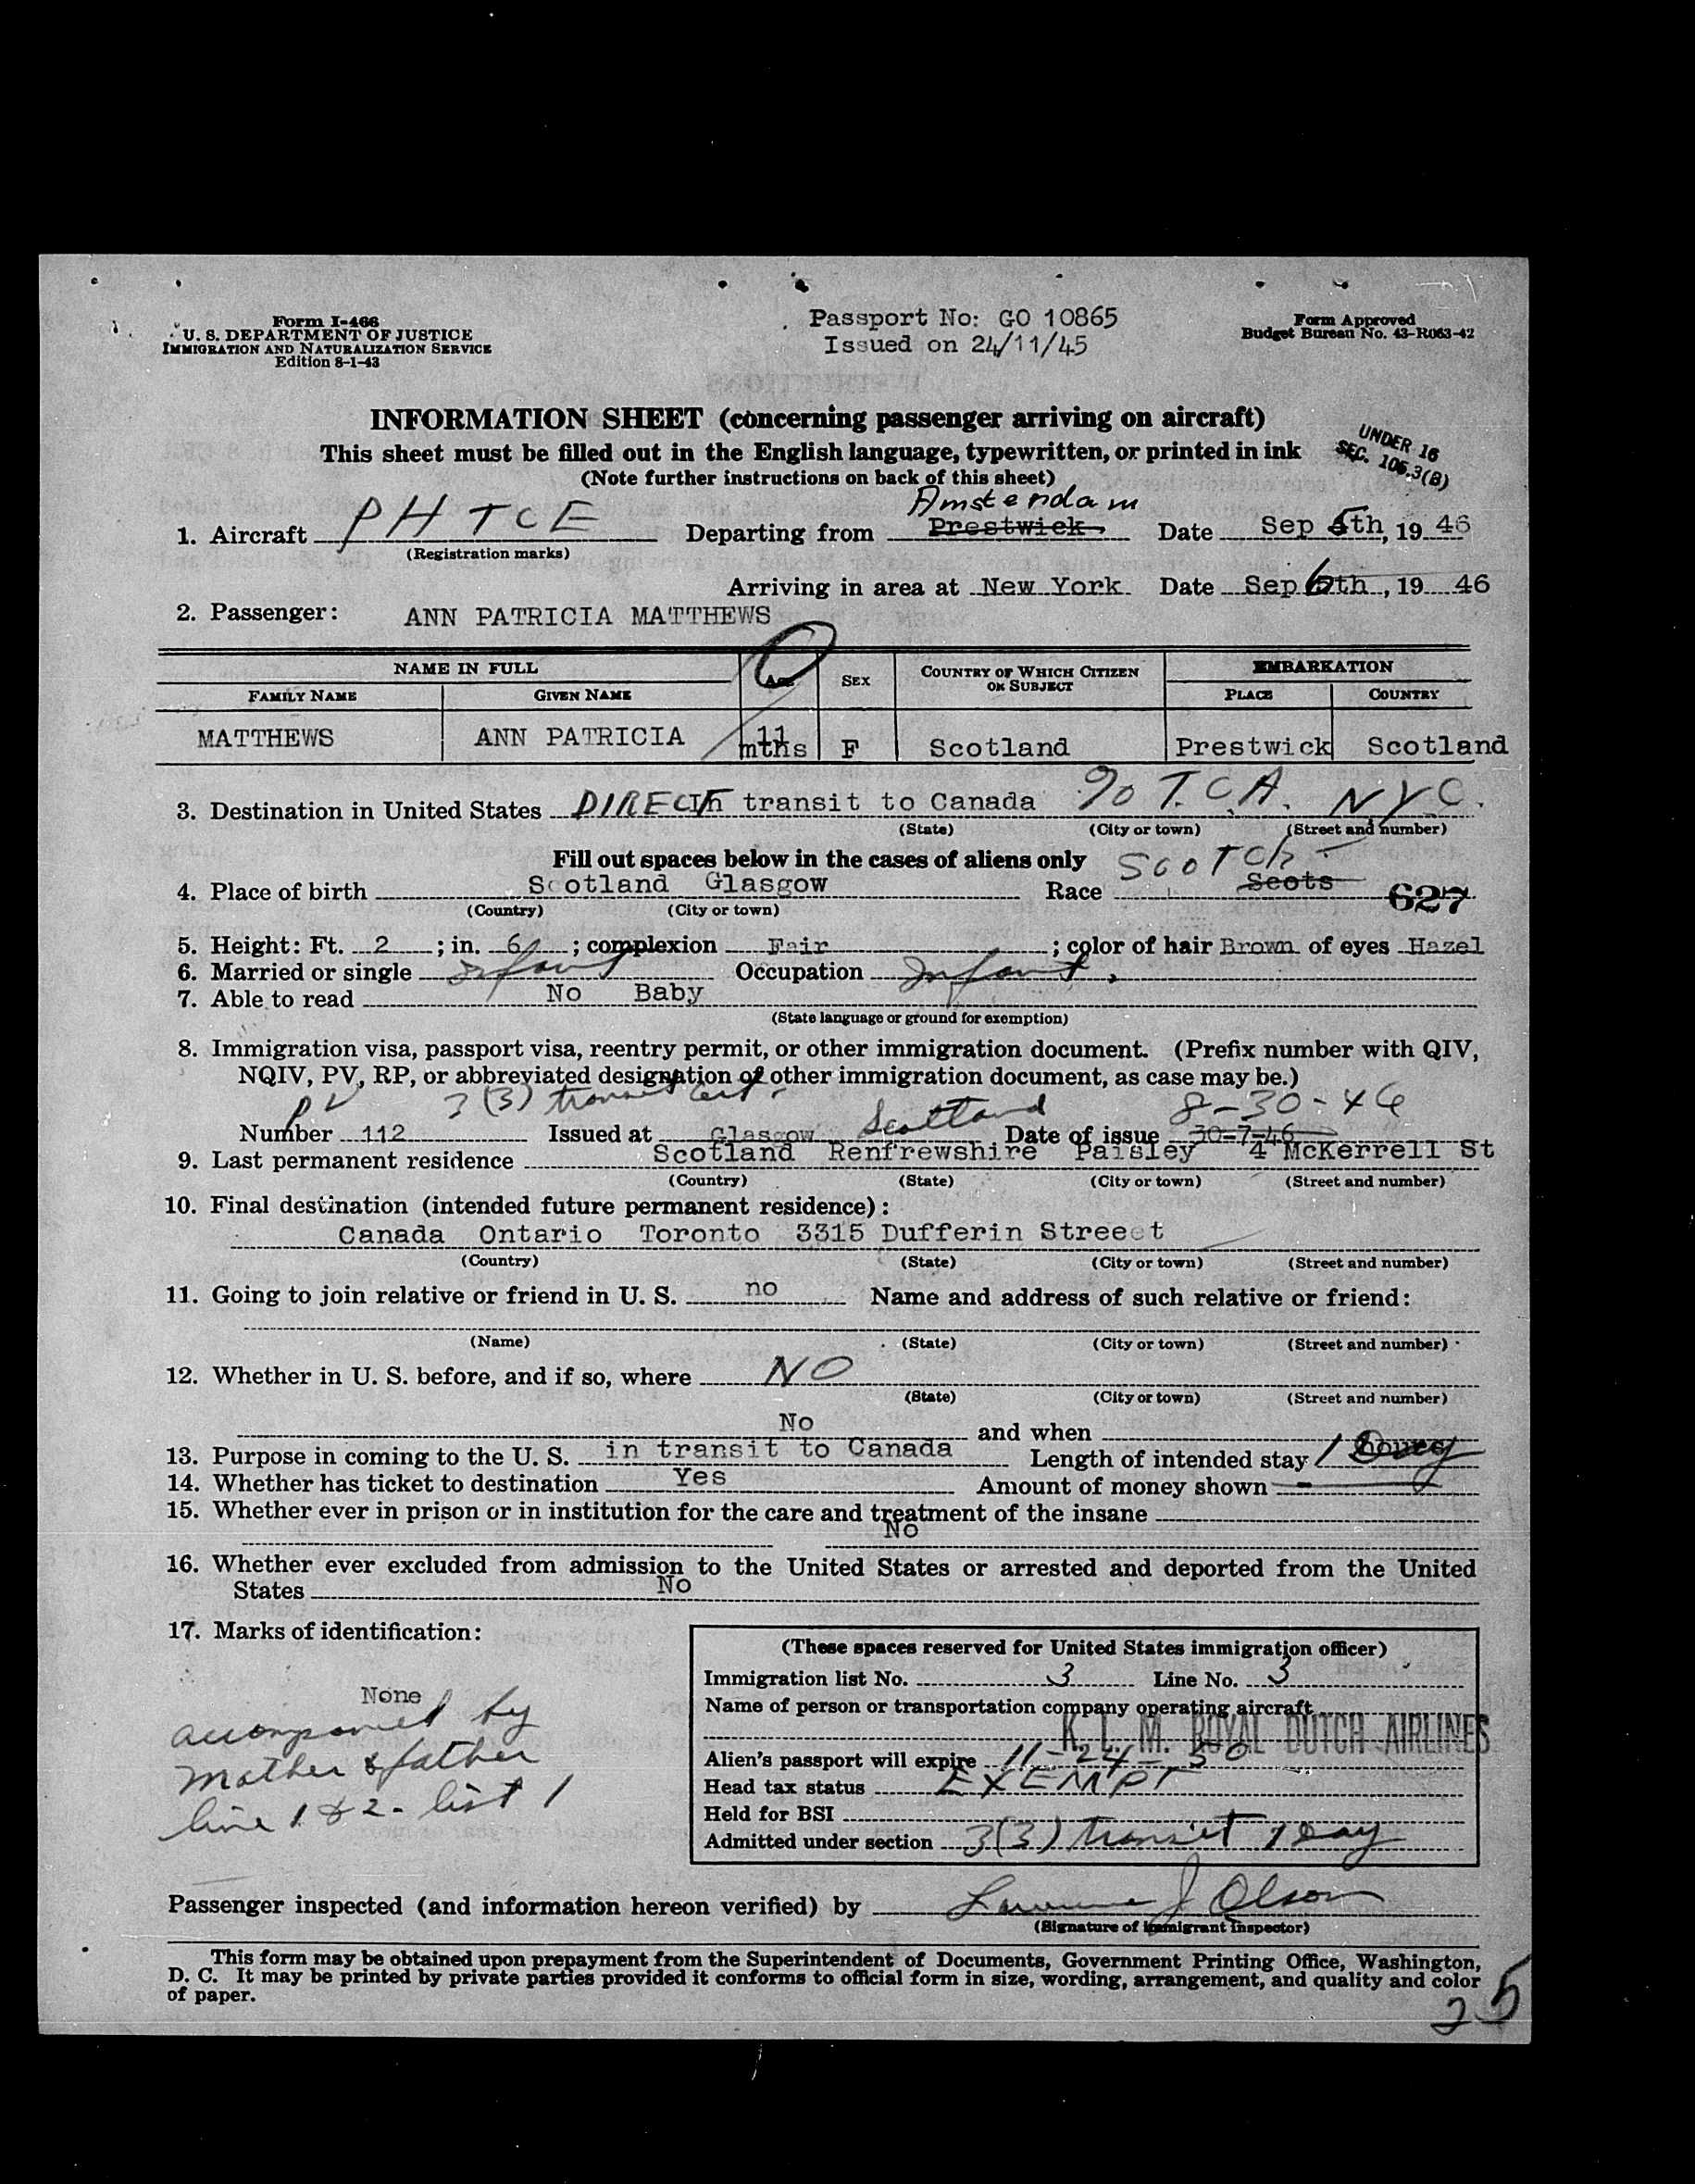 Form I-466
U. S. DEPARTMENT OF JUSTICE
IMMIGRATION AND NATURALIZATION SERVICE
Edition 8-1-43
Passport No: GO 10865
Issued on 24/11/45
Form Approved
Budget Bureau No. 43-R063-42
INFORMATION SHEET (concerning passenger arriving on aircraft)
This sheet must be filled out in the English language, typewritten, or printed in ink
(Note further instructions on back of this sheet)
UNDER 16
SEC. 106.3(B)
Amsterdam
1. Aircraft PH TCE Departing from Prestwick Date Sep 5th, 19 46
(Registration marks)
Arriving in area at New York Date Sep 6th, 19 46
2. Passenger: ANN PATRICIA MATTHEWS
NAME IN FULL AGE SEX COUNTRY OF WHICH CITIZEN OR SUBJECT EMBARKATION
FAMILY NAME GIVEN NAME PLACE COUNTRY
MATTHEWS ANN PATRICIA 11 mths F Scotland Prestwick Scotland
3. Destination in United States DIRECT In transit to Canada % T.C.A. NYC.
(State) (City or town) (Street and number)
Fill out spaces below in the cases of aliens only
Scotch
4. Place of birth Scotland Glasgow Race Scots 627
(Country) (City or town)
5. Height: Ft. 2 ; in. 6 ; complexion Fair ; color of hair Brown of eyes Hazel
6. Married or single Infant Occupation Infant
7. Able to read No Baby
(State language or ground for exemption)
8. Immigration visa, passport visa, reentry permit, or other immigration document. (Prefix number with QIV,
NQIV, PV, RP, or abbreviated designation of other immigration document, as case may be.)
PV 3(3) transit cert. Scotland 8-30-46
Number 112 Issued at Glasgow Date of issue 30-7-46
9. Last permanent residence Scotland Renfrewshire Paisley 4 McKerrell St
(Country) (State) (City or town) (Street and number)
10. Final destination (intended future permanent residence):
Canada Ontario Toronto 3315 Dufferin Streeet
(Country) (State) (City or town) (Street and number)
11. Going to join relative or friend in U. S. no Name and address of such relative or friend:
(Name) (State) (City or town) (Street and number)
12. Whether in U. S. before, and if so, where NO
(State) (City or town) (Street and number)
No and when
13. Purpose in coming to the U. S. in transit to Canada Length of intended stay 1 Day
14. Whether has ticket to destination Yes Amount of money shown -
15. Whether ever in prison or in institution for the care and treatment of the insane
No
16. Whether ever excluded from admission to the United States or arrested and deported from the United
States No
17. Marks of identification:
None
accompanied by
mother & father
line 1 & 2 - list 1
(These spaces reserved for United States immigration officer)
Immigration list No. 3 Line No. 3
Name of person or transportation company operating aircraft
K. L. M. ROYAL DUTCH AIRLINES
Alien's passport will expire 11-24-50
Head tax status EXEMPT
Held for BSI
Admitted under section 3(3) transit 1 day
Passenger inspected (and information hereon verified) by Lawrence J Olson
(Signature of Immigrant Inspector)
This form may be obtained upon prepayment from the Superintendent of Documents, Government Printing Office, Washington,
D. C. It may be printed by private parties provided it conforms to official form in size, wording, arrangement, and quality and color
of paper.
25